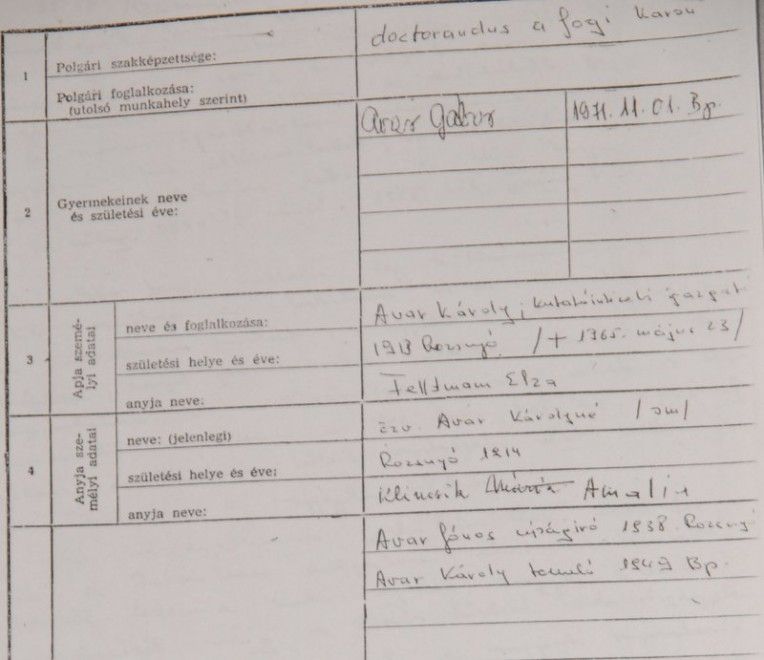 doctorandus a jogi karon
1
Polgári szakképzettsége:
Polgári foglalkozása:
(utolsó munkahely szerint)
Avar Gábor
1971. 11. 01. Bp.
2
Gyermekeinek neve
és születési éve:
3
Apja szemé-
lyi adatai
neve és foglalkozása:
Avar Károly, kutatóintézeti igazgató
születési helye és éve:
1913 Rozsnyó /+ 1965. május 23/
anyja neve:
Feldmann Elza
4
Anyja sze-
mélyi adatai
neve: (jelenlegi)
özv. Avar Károlyné
születési helye és éve:
Rozsnyó 1914
anyja neve:
Klincsik Amália
Avar János újságíró 1938 Rozsnyó
Avar Károly tanuló 1949 Bp.